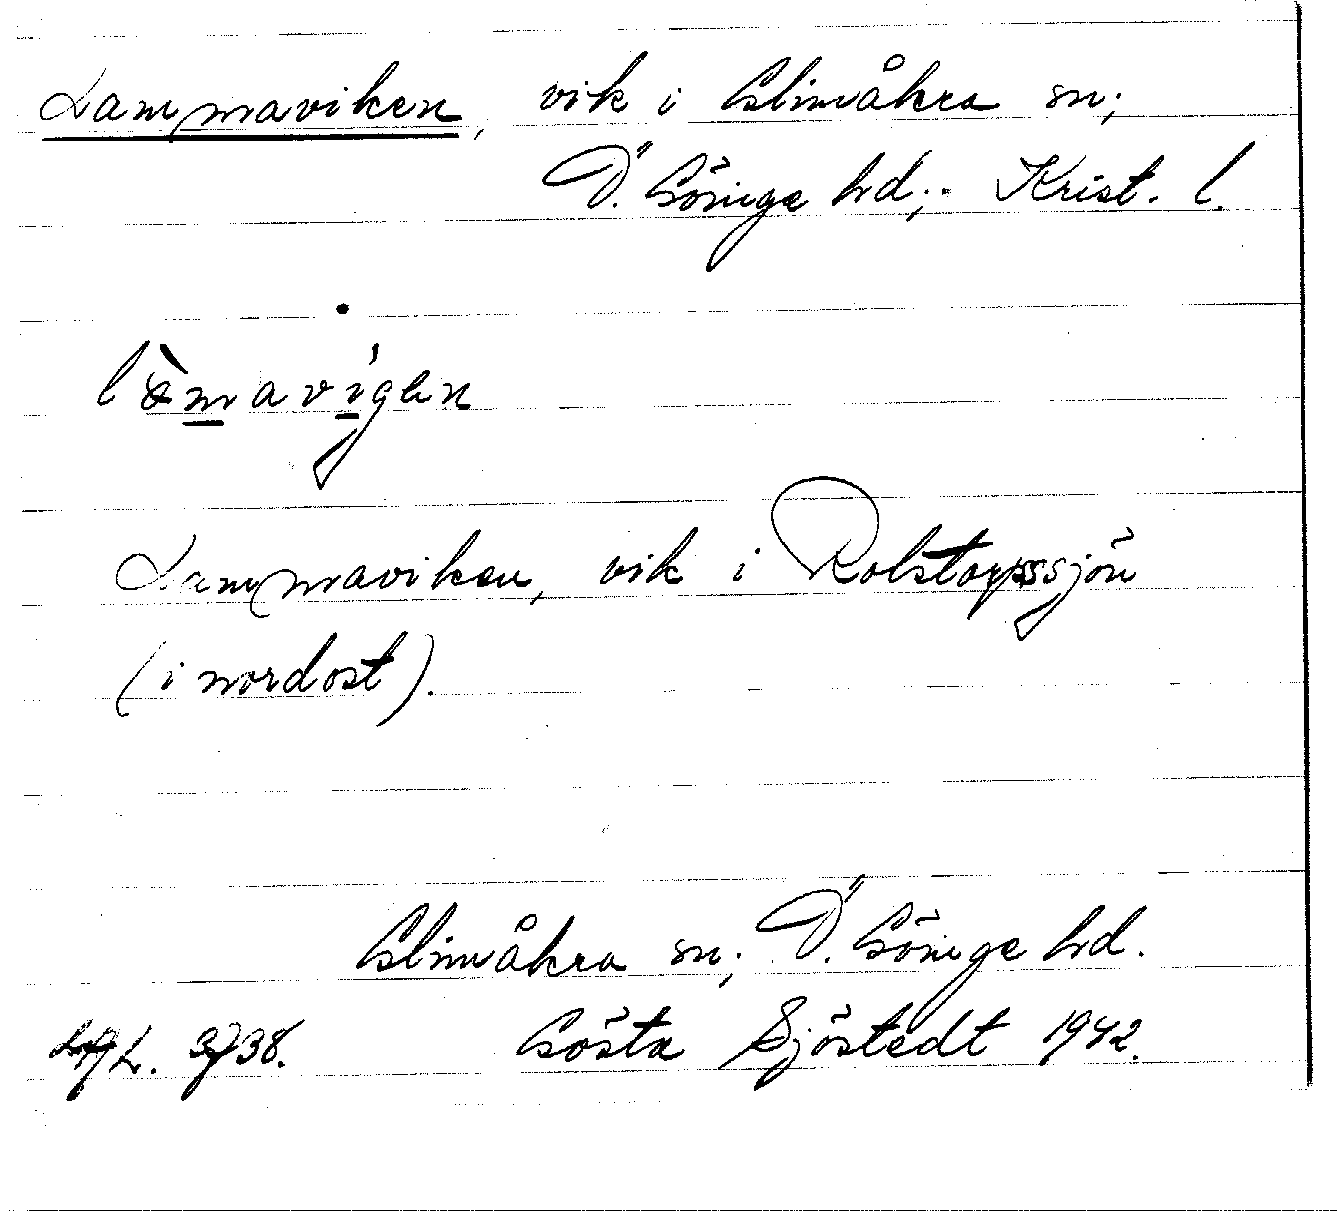 Lammaviken, vik i Glimåkra sn;
Ö. Göinge hd; Krist. l.
làmavigen
Lammaviken, vik i Rolstorpssjön
(i nordost).
Glimåkra sn; Ö. Göinge hd.
Gösta Sjöstedt 1942.